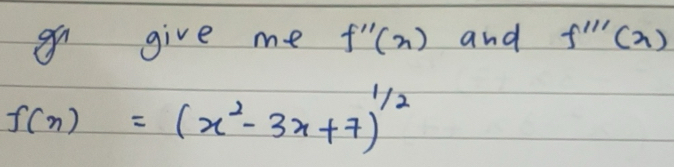 give me f''(x) and f'''(x)
f(x) = (x² - 3x + 7)^{1/2}